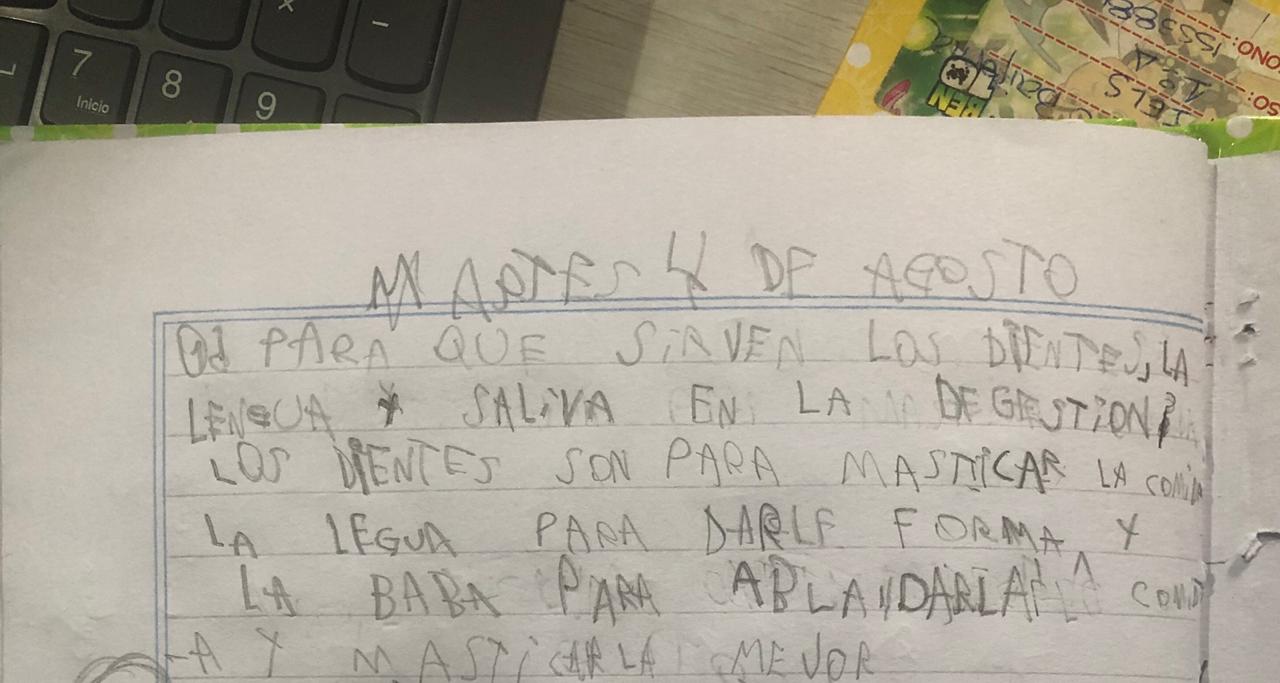 7
Inicio
8
9
×
-
MARTES 4 DE AGOSTO
PARA QUE SIRVEN LOS DIENTES, LA
LENGUA Y SALIVA EN LA DEGESTION?
LOS DIENTES SON PARA MASTICAR LA
LA LEGUA PARA DARLE FORMA Y
LA BABA PARA ABLANDARLA LA COMID
-A Y MASTICARLA MEJOR